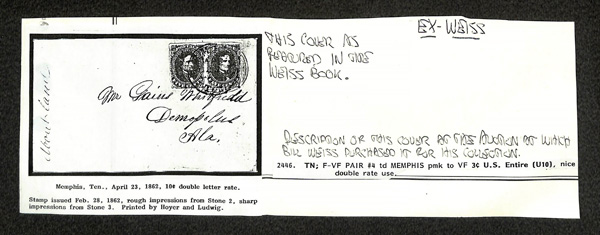 EX-WEISS
THIS COVER AS
FEATURED IN THE
WEISS BOOK.
Gaius Whitfield
Demopolis
Ala.
DESCRIPTION OF THIS COVER AT THE AUCTION AT WHICH
BILL WEISS PURCHASED IT FOR HIS COLLECTION.
2446. TN; F-VF PAIR #4 td MEMPHIS pmk to VF 3¢ U.S. Entire (U10), nice
double rate use.
Memphis, Ten., April 23, 1862, 10¢ double letter rate.
Stamp issued Feb. 28, 1862, rough impressions from Stone 2, sharp
impressions from Stone 3. Printed by Hoyer and Ludwig.